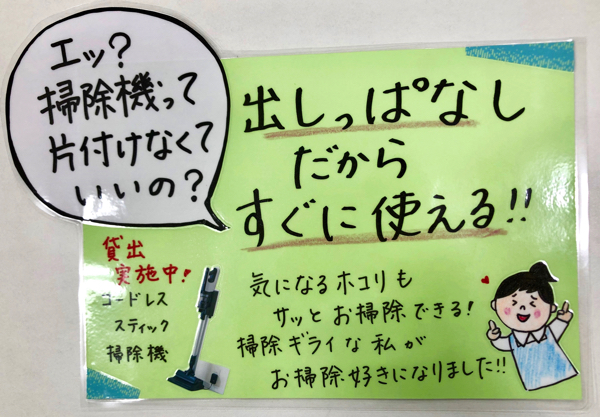 エッ?
掃除機って
片付けなくて
いいの?
出しっぱなし
だから
すぐに使える!!
貸出
実施中!
コードレス
スティック
掃除機
気になるホコリも
サッとお掃除できる!
掃除ギライな私が
お掃除好きになりました!!